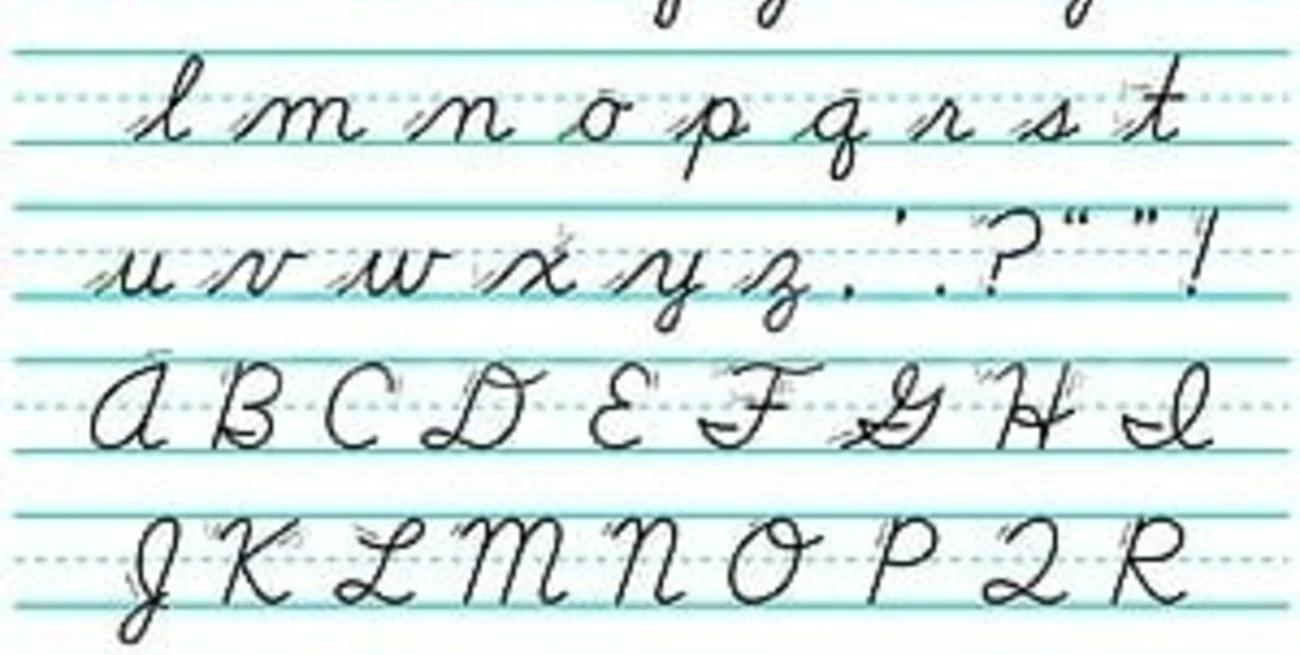 l m n o p q r s t
u v w x y z . ' . ? “ ” !
A B C D E F G H I
J K L M N O P Q R